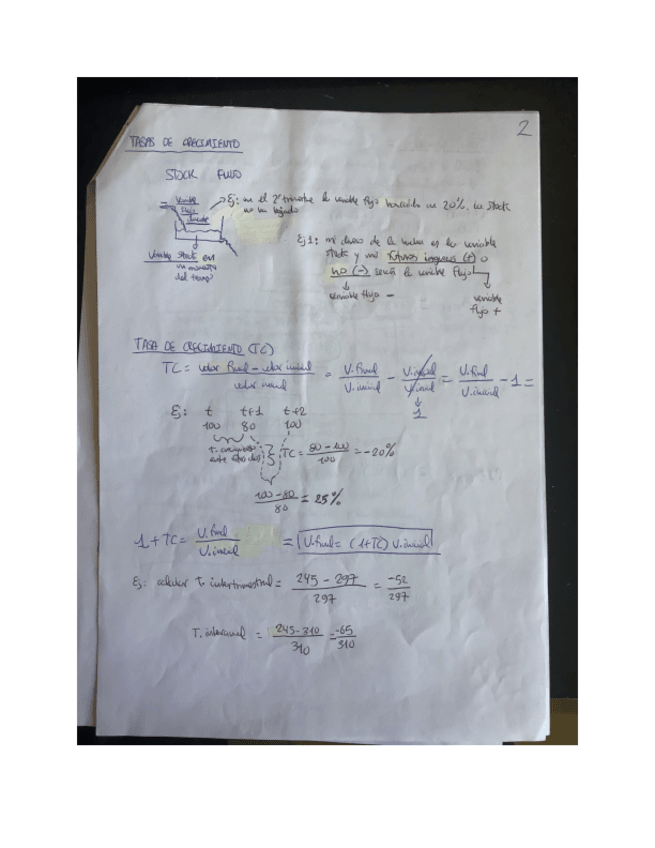 2
TASAS DE CRECIMIENTO
STOCK FLUJO
Variable
Flujo
Ej: en el 2º trimestre la variable flujo ha crecido un 20%, su stock
no ha bajado
Variable stock en
un momento
del tiempo
Ej 1: mi dinero de la es la variable
stock y mis futuros ingresos (+) o
no (-) sería la variable flujo
variable flujo -
variable
flujo +
TASA DE CRECIMIENTO (TC)
TC = valor final - valor inicial / valor inicial = V.final / V.inicial - V.inicial / V.inicial = V.final / V.inicial - 1 =
1
Ej: t t+1 t+2
100 80 100
T. crecimiento
entre
TC = 80 - 100 / 100 = -20%
100 - 80 / 80 = 25%
1 + TC = V.final / V.inicial = V.final = (1+TC) V.inicial
Ej: calcular t. intertrimestral = 245 - 297 / 297 = -52 / 297
T. interanual = 245 - 310 / 310 = -65 / 310